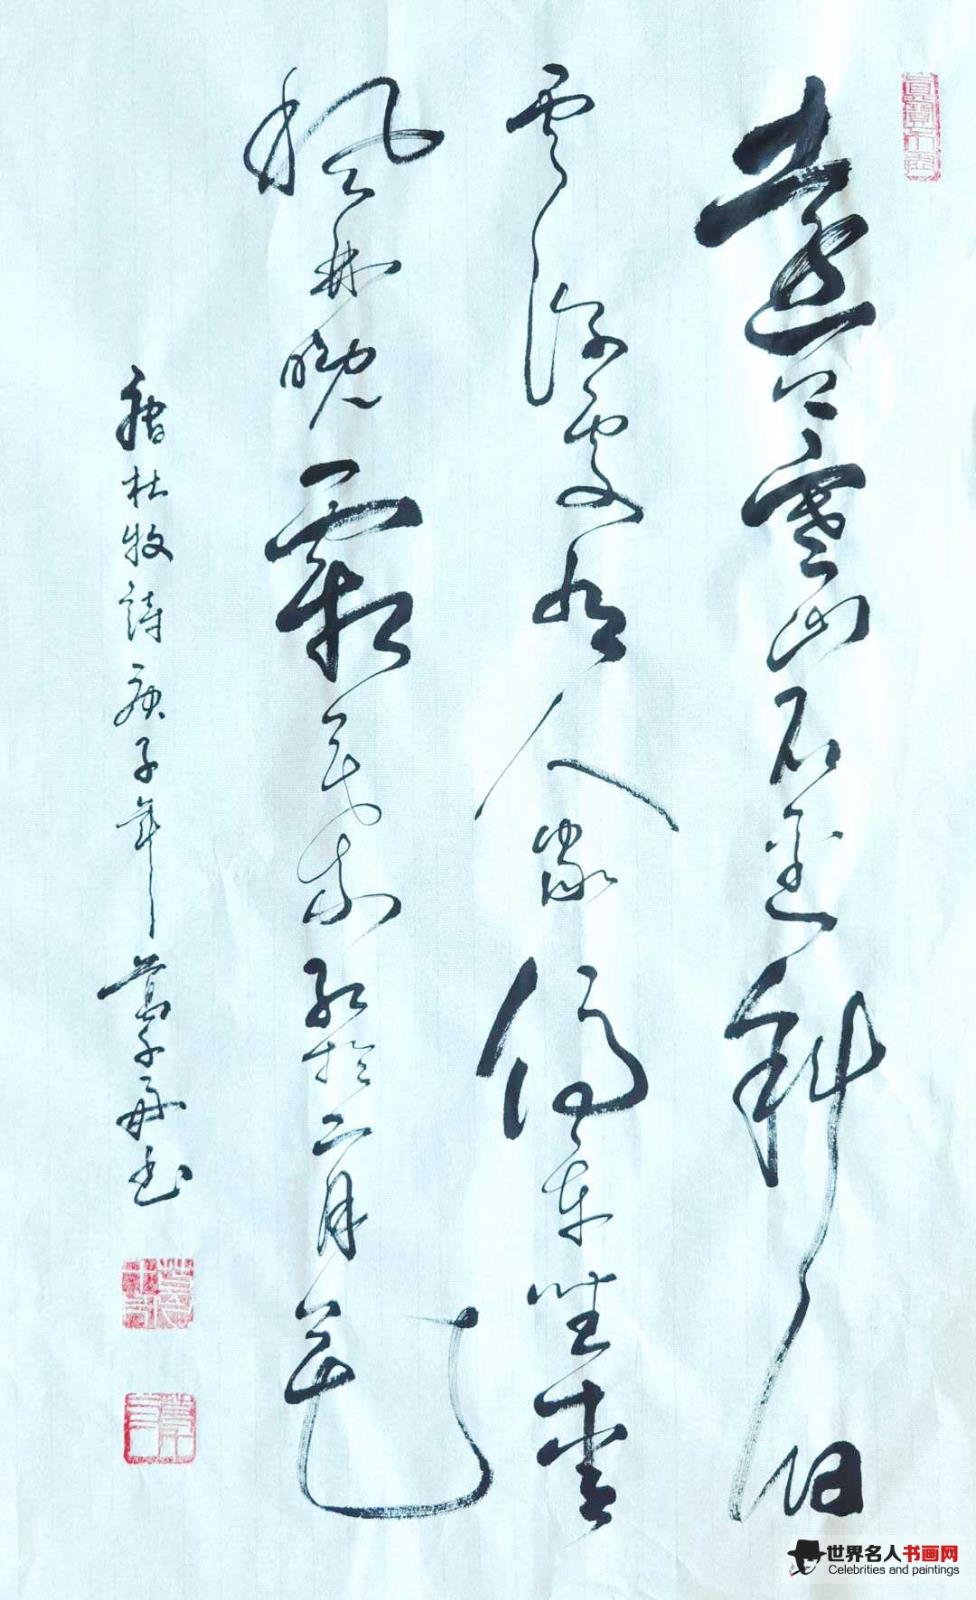 遠上寒山石徑斜白
雲深處有人家停車坐愛
楓林晚霜葉紅於二月花
唐杜牧詩庚子年書
世界名人书画网
Celebrities and paintings